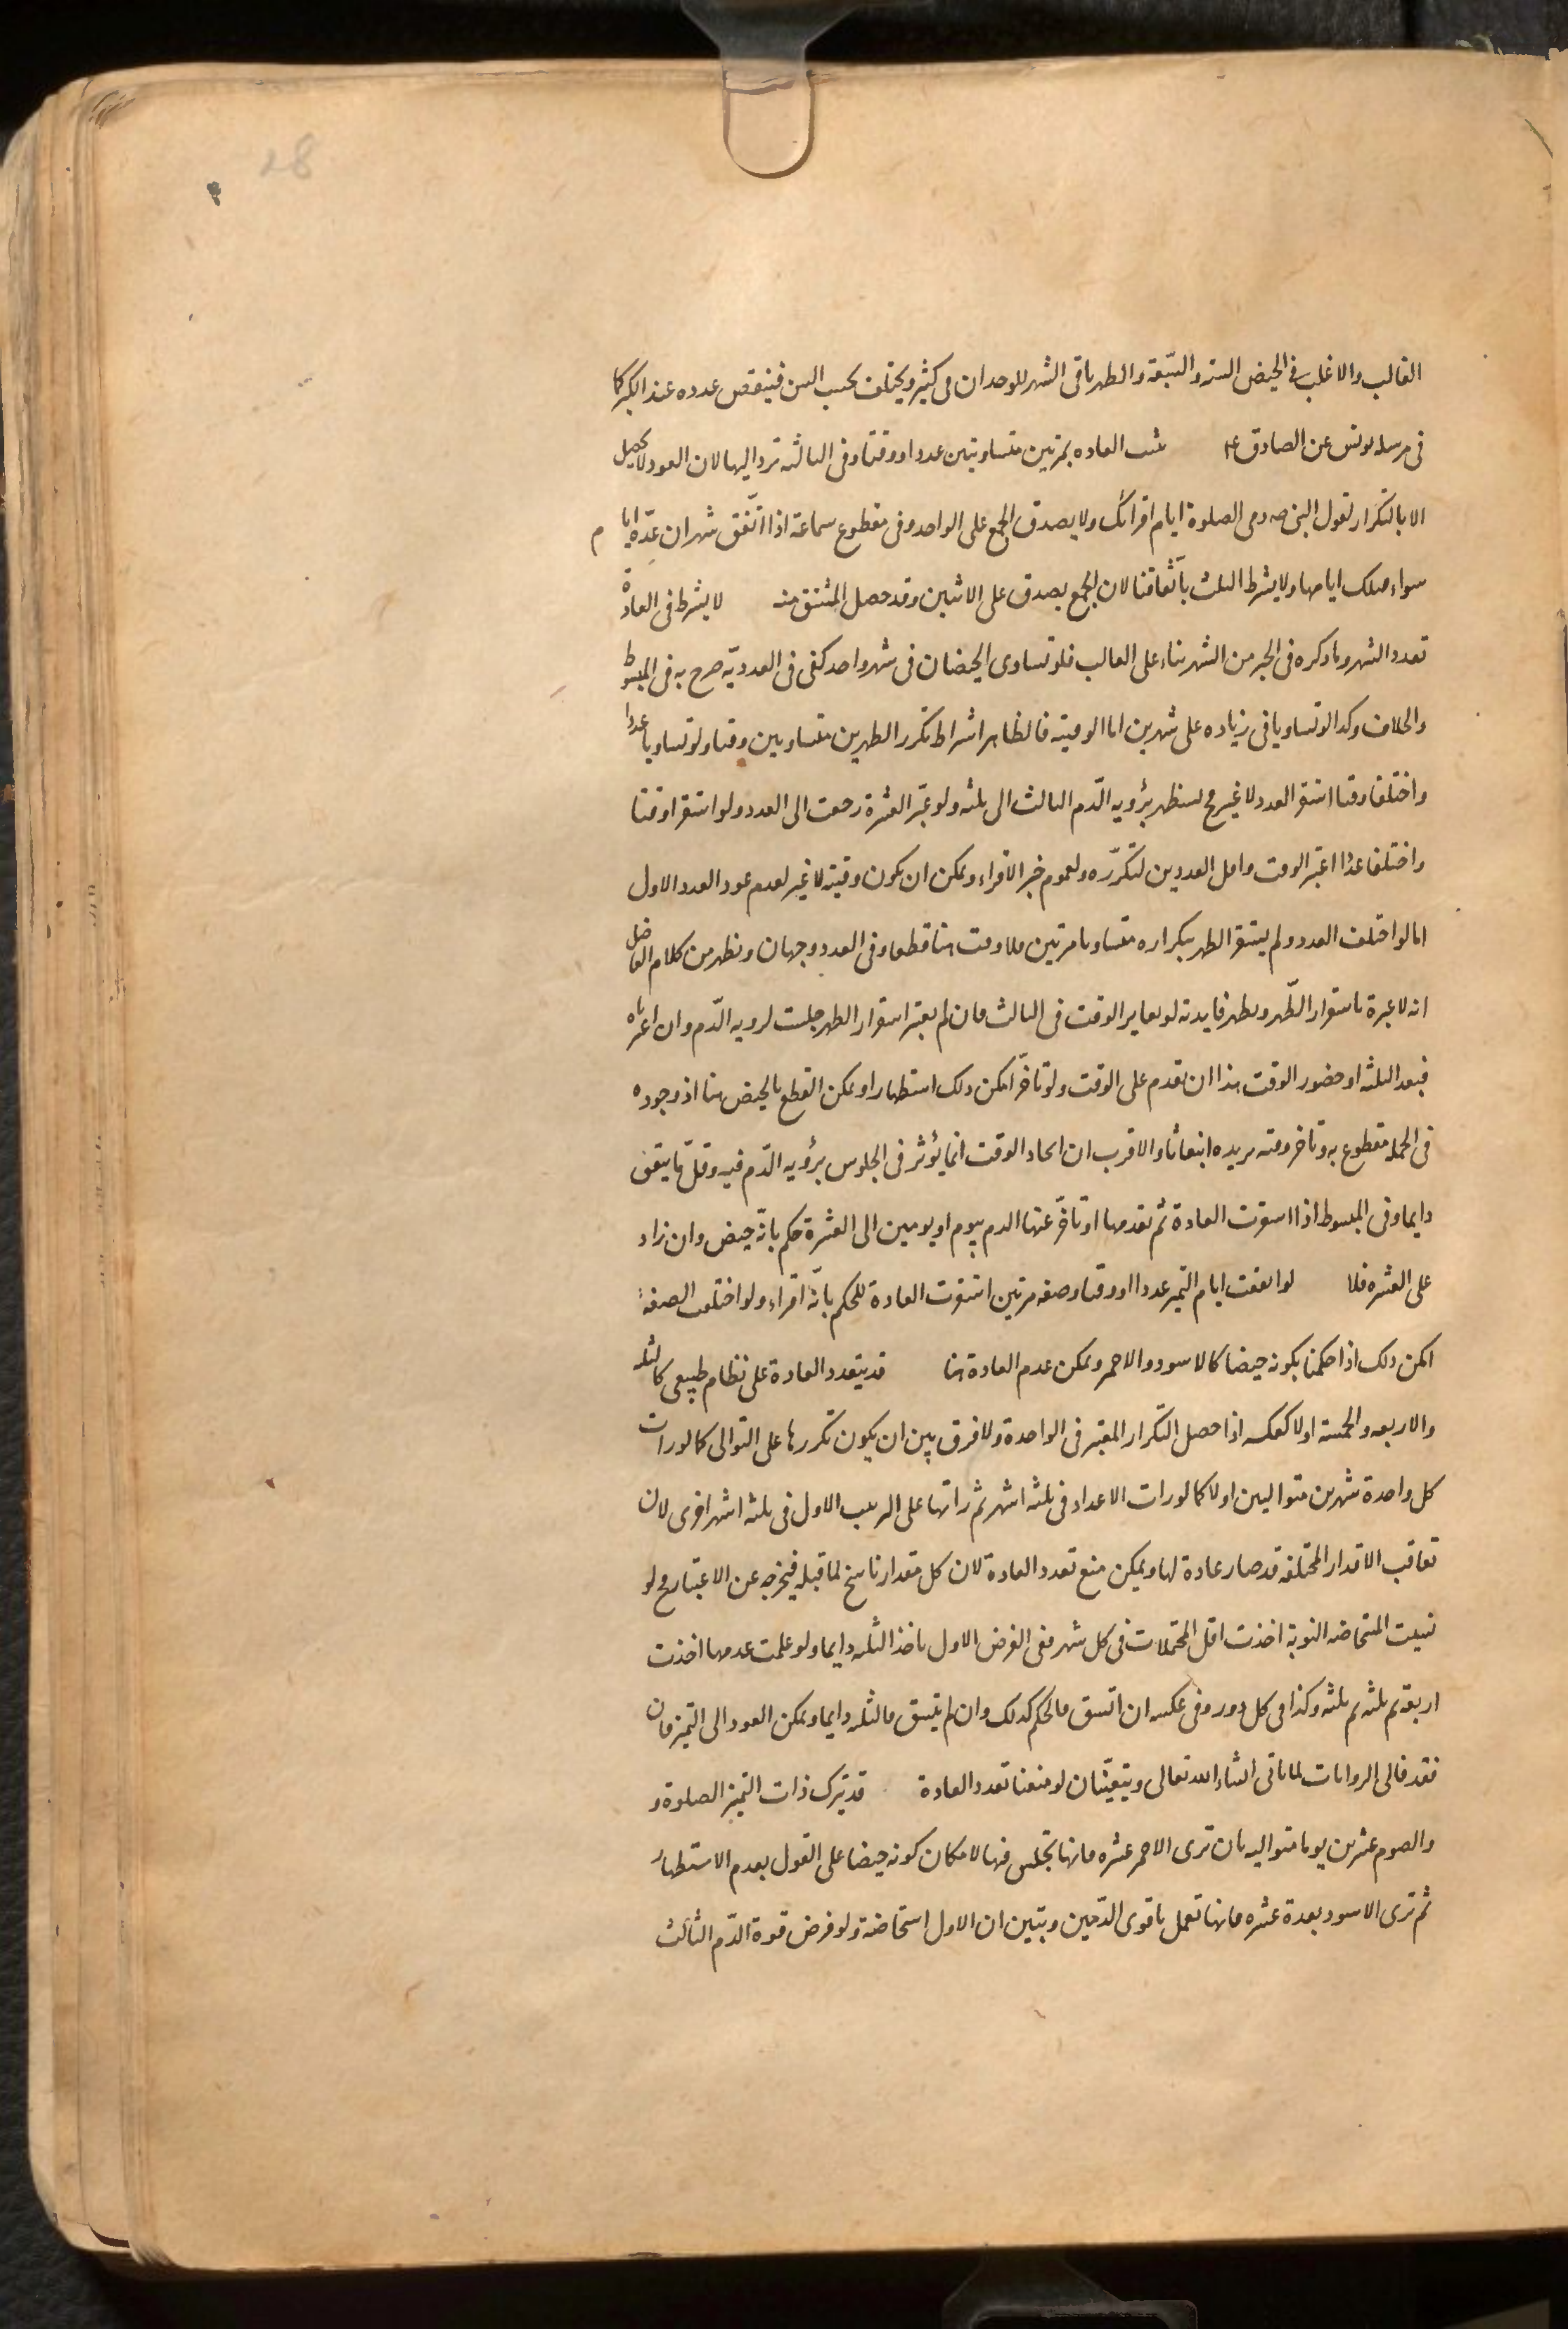 28
الغالب والاغلب فى الحيض الستة والسّبعة والطهر باقى الشهر للوجدان فى كثير ويختلف بحسب السن فينقص عدده عند الكبر كما
فى مرسلة يونس عن الصادق ع تثبت العادة بمرتين متساويتين عددا ووقتا وفى الثالثة ترد اليها لان العود لا يحصل
الا بالتكرار لقول النبى صه دعى الصلوة ايام اقرائك ولا يصدق الجمع على الواحد وفى مقطوع سماعة اذا اتّفق شهران عدّة ايام
سواء فتلك ايامها ولا يشترط الثلث باتّفاقنا لان الجمع يصدق على الاثنين وقد حصل المشتق منه لا يشترط فى العادة
تعدد الشهر وما ذكره فى الخبر من الشهر بناء على الغالب فلو تساوى الحيضان فى شهر واحد كفى فى العدديّة صرح به فى المبسوط
والخلاف وكذا لو تساويا فى زيادة على شهرين اما الوقتية فالظاهر اشتراط تكرر الطهرين متساويين وقتا ولو تساويا عددا
واختلفا وقتا استقر العدد لا غير وح تستظهر برؤية الدّم الثالث الى ثلثة ولو عبّر العشرة رجعت الى العدد ولو استقرا وقتا
واختلفا عددا اعتبر الوقت واقل العددين لتكرّره ولعموم خبر الاقراء ويمكن ان يكون وقتية لا غير لعدم عود العدد الاول
اما لو اختلف العدد ولم يستقر الطهر بتكراره متساويا مرتين فلا وقت هنا قطعا وفى العدد وجهان ويظهر من كلام الفاضل
انه لا عبرة باستقرار الطّهر ويظهر فايدته لو تغاير الوقت فى الثالث فان لم يعتبر استقرار الطهر جلست لرؤية الدّم وان اعتبرناه
فبعد الثلثة او حضور الوقت هذا ان تقدم على الوقت ولو تاخّر امكن ذلك استظهارا ويمكن القطع بالحيض هنا اذ وجوده
فى الجملة مقطوع به وتاخر وقته يزيده انبعاثا والاقرب ان اتحاد الوقت انما يؤثر فى الجلوس برؤية الدّم فيه وقلّ ما يتفق
دايما وفى المبسوط اذا استقرت العادة ثم تقدمها او تاخّر عنها الدم بيوم او يومين الى العشرة حكم بانّه حيض وان زاد
على العشرة فلا لو اتفقت ايام التميز عددا ووقتا وصفة مرتين استقرت العادة للحكم بانّه اقراء ولو اختلفت الصفة
امكن ذلك اذا حكمنا بكونه حيضا كالاسود والاحمر ويمكن عدم العادة هنا قد يتعدد العادة على نظام طبيعى كالثلثة
والاربعة والخمسة اولا كعكسه اذا حصل التكرار المعتبر فى الواحدة ولا فرق بين ان يكون تكررها على التوالى كما لو رات
كل واحدة شهرين متواليين اولا كما لو رات الاعداد فى ثلثة اشهر ثم راتها على الترتيب الاول فى ثلثة اشهر اخرى لان
تعاقب الاقدار المختلفة قد صار عادة لها ويمكن منع تعدد العادة لان كل مقدار ناسخ لما قبله فيخرجه عن الاعتبار وح لو
نسيت المستحاضة النوبة اخذت اقل المحتملات فى كل شهر ففى الفرض الاول تاخذ الثلثة دايما ولو علمت عدمها اخذت
اربعة ثم ثلثة ثم ثلثة وكذا فى كل دور وفى عكسه ان اتسق فالحكم كذلك وان لم يتسق فالثلثة دايما ويمكن العود الى التميز فان
فقد فالى الروايات لما ياتى انشاء الله تعالى ويتعيّنان لو منعنا تعدد العادة قد تترك ذات التميز الصلوة و
والصوم عشرين يوما متوالية بان ترى الاحمر عشرة فانها تجلس فيها لامكان كونه حيضا على القول بعدم الاستظهار
ثم ترى الاسود بعده عشرة فانها تعمل باقوى الدّمين ويتبين ان الاول استحاضة ولو فرض قوة الدّم الثالث